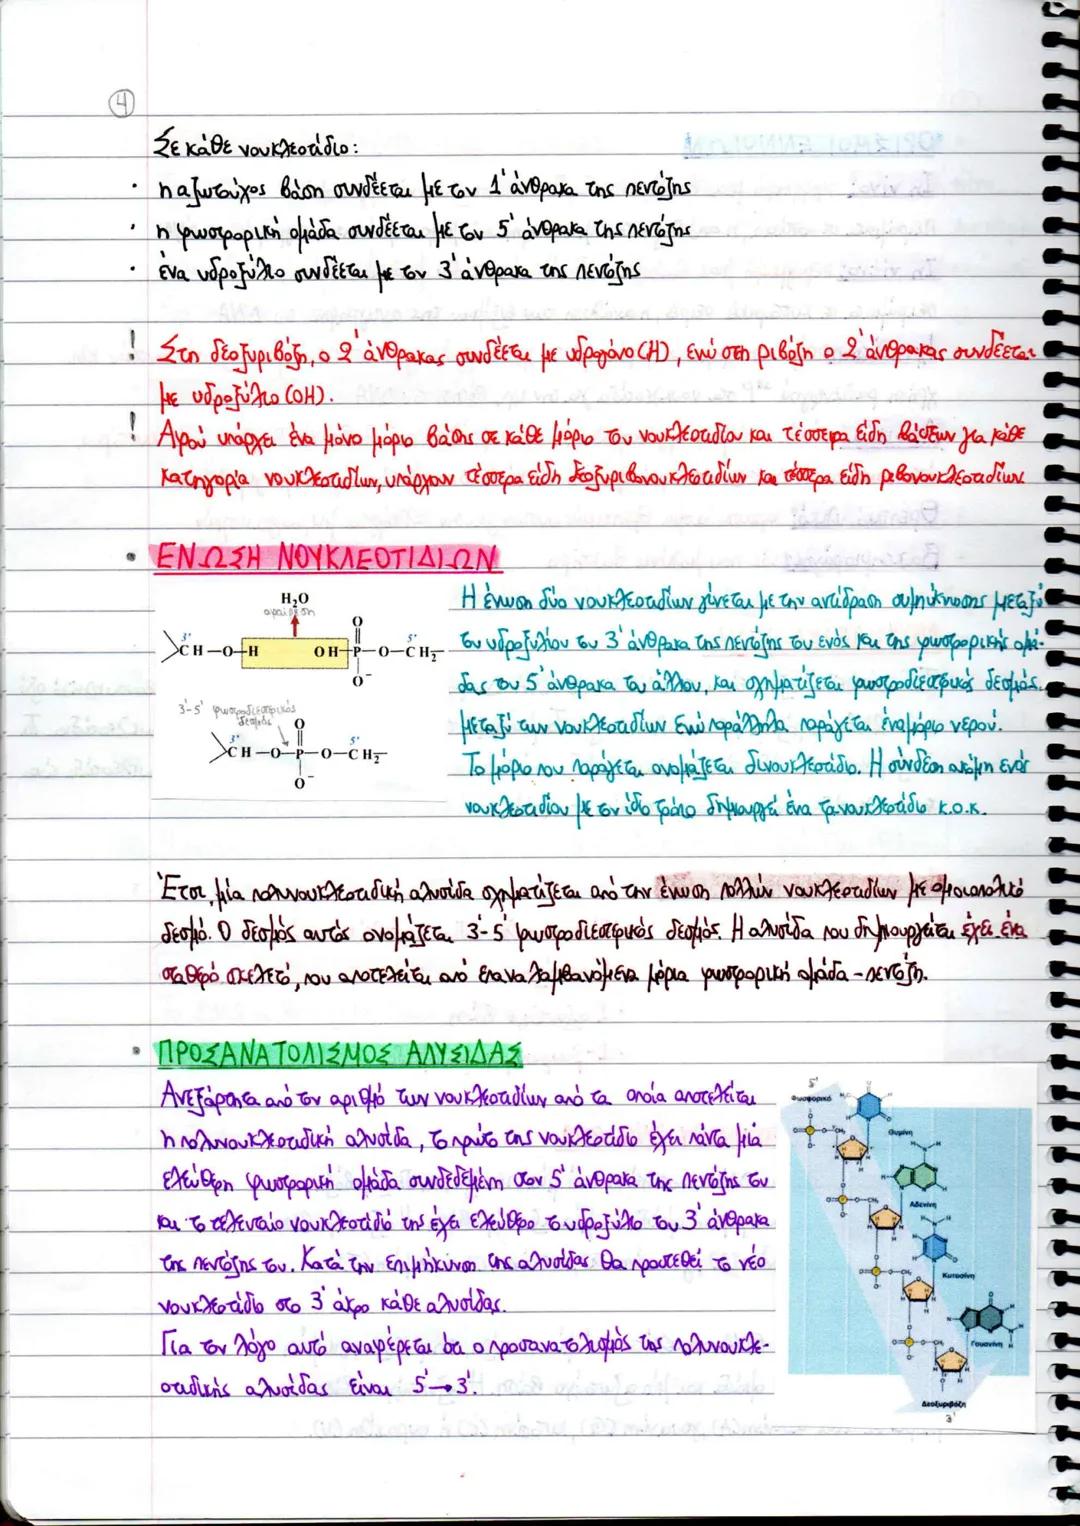 4
Σε κάθε νουκλεοτίδιο:
· η αζωτούχος βάση συνδέεται με τον 1' άνθρακα της πεντόζης
· η φωσφορική ομάδα συνδέεται με τον 5' άνθρακα της πεντόζης
· ένα υδροξύλιο συνδέεται με τον 3' άνθρακα της πεντόζης
! Στη δεοξυριβόζη, ο 2' άνθρακας συνδέεται με υδρογόνο (Η), ενώ στη ριβόζη ο 2' άνθρακας συνδέεται
με υδροξύλιο (ΟΗ).
! Αφού υπάρχει ένα μόνο μόριο βάσης σε κάθε μόριο του νουκλεοτιδίου και τέσσερα είδη βάσεων για κάθε
κατηγορία νουκλεοτιδίων, υπάρχουν τέσσερα είδη δεοξυριβονουκλεοτιδίων και τέσσερα είδη ριβονουκλεοτιδίων
• ΕΝΩΣΗ ΝΟΥΚΛΕΟΤΙΔΙΩΝ
H₂O
αφαίρεση
O
3' 5'
CH-O-H OH-P-O-CH₂
O⁻
3'-5' φωσφοδιεστερικός
δεσμός
O
3' 5'
CH-O-P-O-CH₂
O⁻
Η ένωση δύο νουκλεοτιδίων γίνεται με την αντίδραση συμπύκνωσης μεταξύ
του υδροξυλίου του 3' άνθρακα της πεντόζης του ενός και της φωσφορικής ομά-
δας του 5' άνθρακα του άλλου, και σχηματίζεται φωσφοδιεστερικός δεσμός
μεταξύ των νουκλεοτιδίων ενώ παράλληλα παράγεται ένα μόριο νερού.
Το μόριο που παράγεται ονομάζεται δινουκλεοτίδιο. Η σύνδεση ακόμη ενός
νουκλεοτιδίου με τον ίδιο τρόπο δημιουργεί ένα τρινουκλεοτίδιο κ.ο.κ.
Έτσι, μία πολυνουκλεοτιδική αλυσίδα σχηματίζεται από την ένωση πολλών νουκλεοτιδίων με ομοιοπολικό
δεσμό. Ο δεσμός αυτός ονομάζεται 3'-5' φωσφοδιεστερικός δεσμός. Η αλυσίδα που δημιουργείται έχει ένα
σταθερό σκελετό, που αποτελείται από επαναλαμβανόμενα μόρια φωσφορική ομάδα - πεντόζη.
• ΠΡΟΣΑΝΑΤΟΛΙΣΜΟΣ ΑΛΥΣΙΔΑΣ
Ανεξάρτητα από τον αριθμό των νουκλεοτιδίων από τα οποία αποτελείται
η πολυνουκλεοτιδική αλυσίδα, το πρώτο της νουκλεοτίδιο έχει πάντα μία
ελεύθερη φωσφορική ομάδα συνδεδεμένη στον 5' άνθρακα της πεντόζης του
και το τελευταίο νουκλεοτίδιό της έχει ελεύθερο το υδροξύλιο του 3' άνθρακα
της πεντόζης του. Κατά την επιμήκυνση της αλυσίδας θα προστεθεί το νέο
νουκλεοτίδιο στο 3' άκρο κάθε αλυσίδας.
Για τον λόγο αυτό αναφέρεται ότι ο προσανατολισμός της πολυνουκλε-
οτιδικής αλυσίδας είναι 5'→3'.
5'
Φωσφορικό
Θυμίνη
Αδενίνη
Κυτοσίνη
Γουανίνη
Δεοξυριβόζη
3'